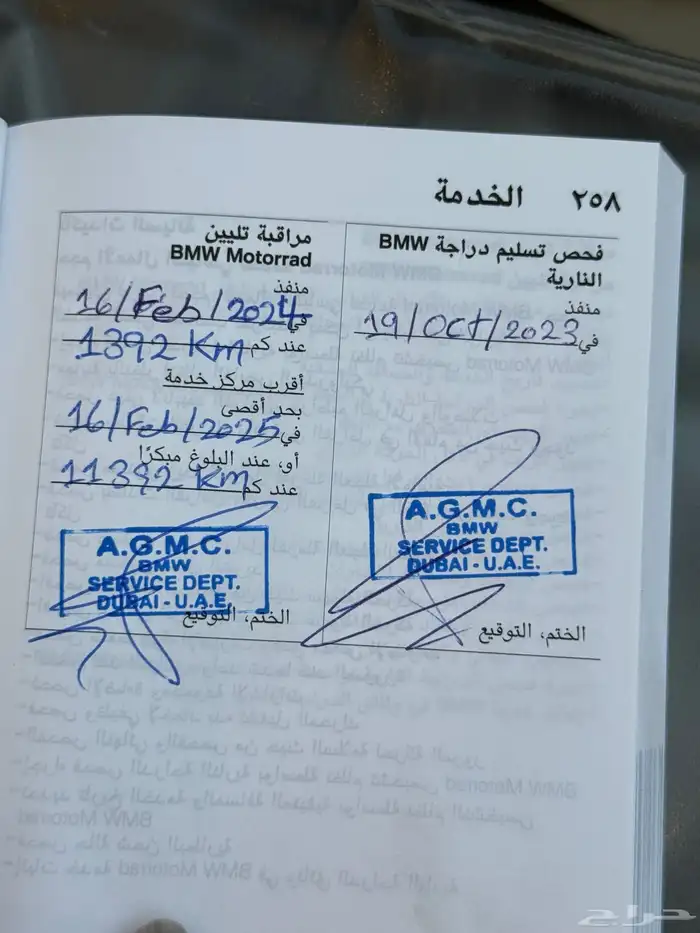 ٢٥٨ الخدمة
فحص تسليم دراجة BMW
النارية
منفذ
في 19/Oct/2023
A.G.M.C.
BMW
SERVICE DEPT.
DUBAI - U.A.E.
الختم، التوقيع
مراقبة تليين
BMW Motorrad
منفذ
في 16/Feb/2024
عند كم 1392 Km
أقرب مركز خدمة
بحد أقصى
في 16/Feb/2025
أو، عند البلوغ مبكرًا
عند كم 11392 Km
A.G.M.C.
BMW
SERVICE DEPT.
DUBAI - U.A.E.
الختم، التوقيع
حراج